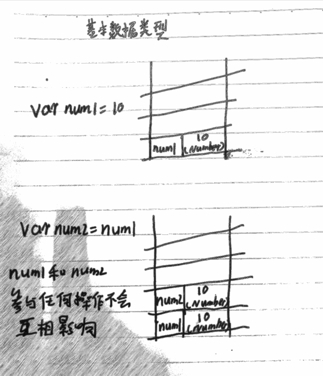 基本数据类型
var num1 = 10
num1
10
(Number)
var num2 = num1
num1和num2
参与任何操作不会
互相影响
num2
10
(Number)
num1
10
(Number)